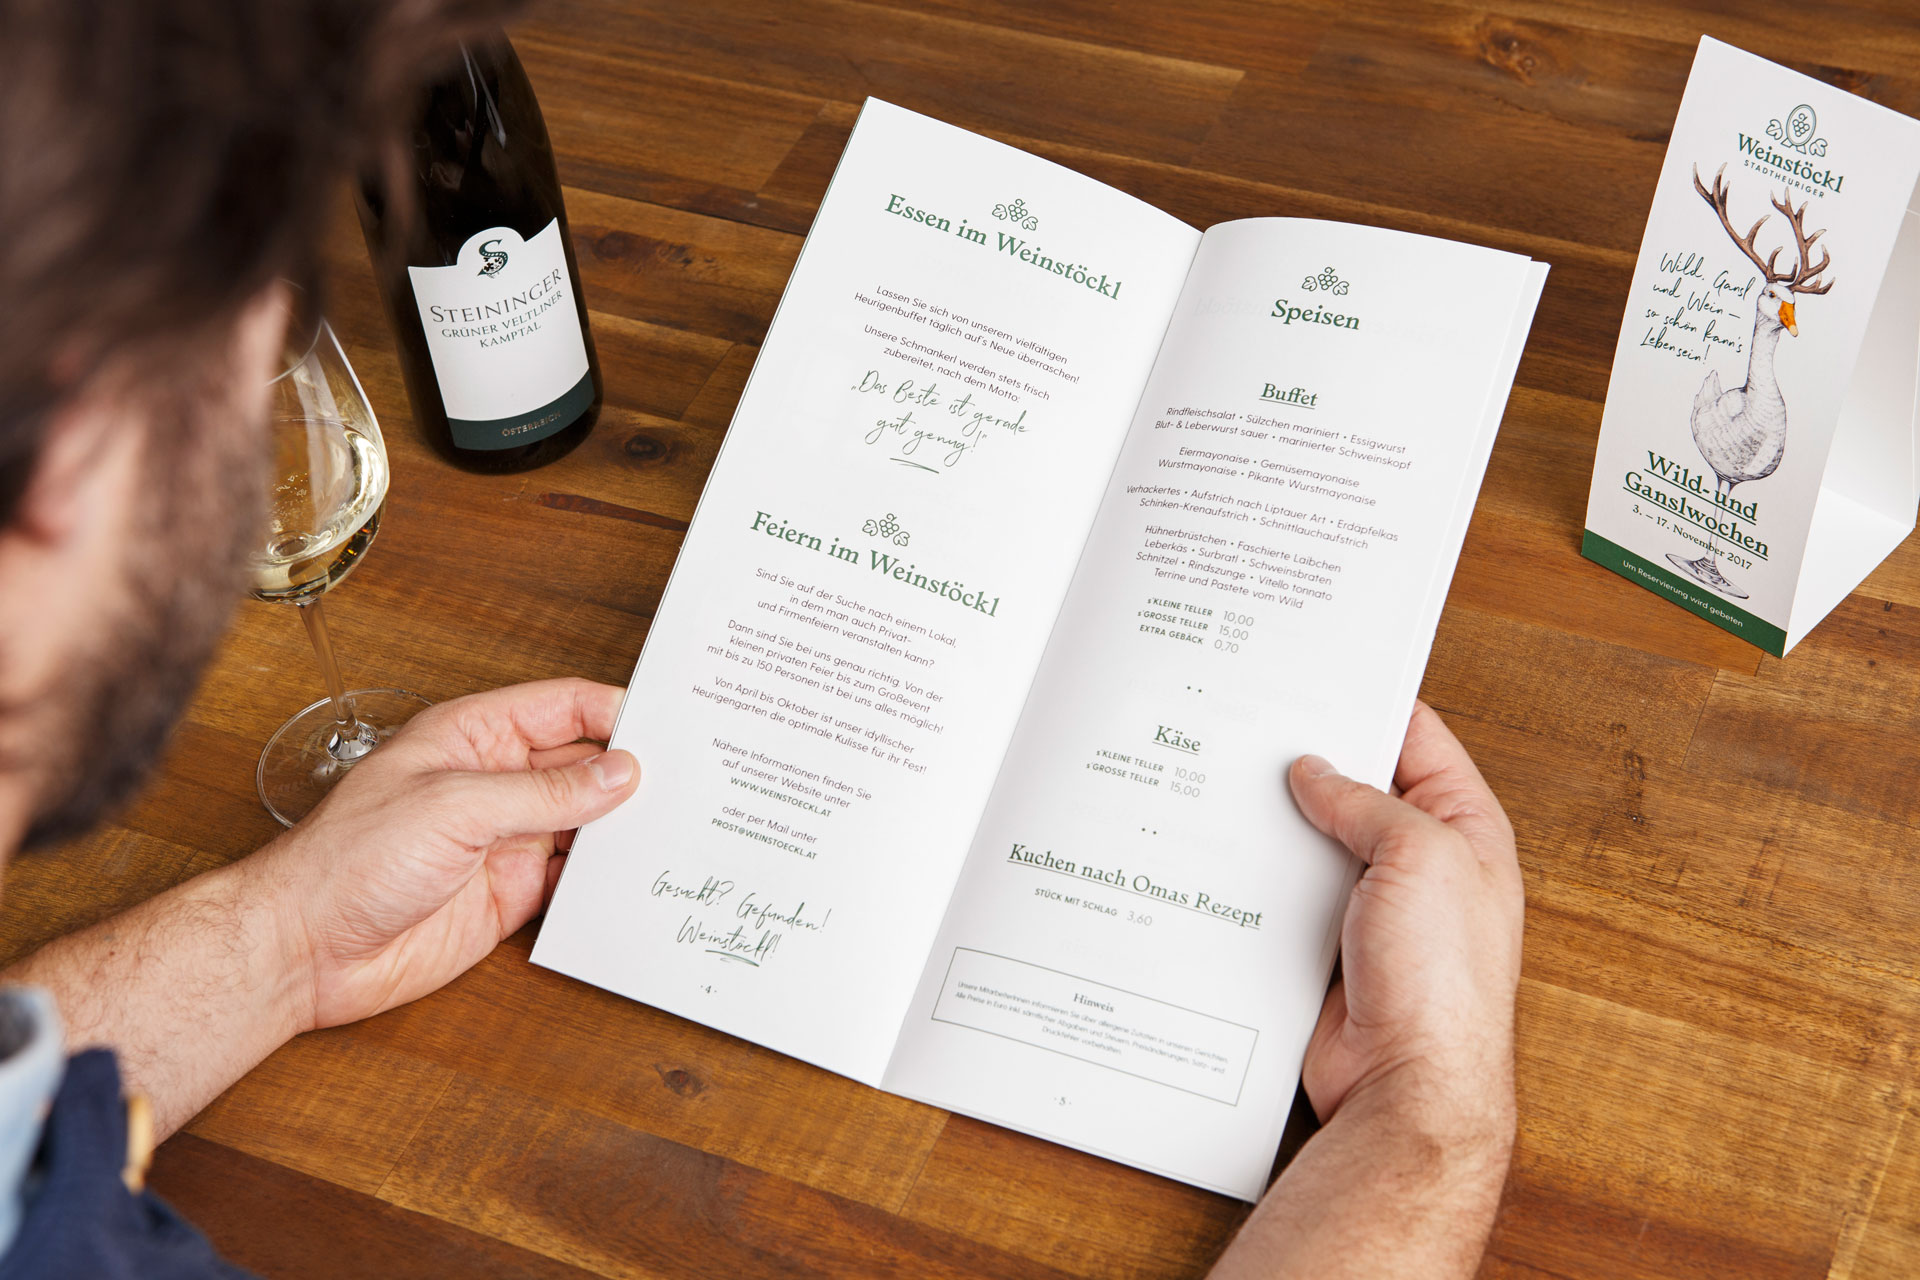 STEININGER
GRÜNER VELTLINER
KAMPTAL
ÖSTERREICH
Essen im Weinstöckl
Lassen Sie sich von unserem vielfältigen
Heurigenbuffet täglich auf's Neue überraschen!
Unsere Schmankerl werden stets frisch
zubereitet, nach dem Motto:
„Das Beste ist gerade
gut genug!“
Feiern im Weinstöckl
Sind Sie auf der Suche nach einem Lokal,
in dem man auch Privat-
und Firmenfeiern veranstalten kann?
Dann sind Sie bei uns genau richtig. Von der
kleinen privaten Feier bis zum Großevent
mit bis zu 150 Personen ist bei uns alles möglich!
Von April bis Oktober ist unser idyllischer
Heurigengarten die optimale Kulisse für ihr Fest!
Nähere Informationen finden Sie
auf unserer Website unter
WWW.WEINSTOECKL.AT
oder per Mail unter
PROST@WEINSTOECKL.AT
Gesucht? Gefunden!
Weinstöckl!
· 4 ·
Speisen
Buffet
Rindfleischsalat • Sülzchen mariniert • Essigwurst
Blut- & Leberwurst sauer • marinierter Schweinskopf
Eiermayonaise • Gemüsemayonaise
Wurstmayonaise • Pikante Wurstmayonaise
Verhackertes • Aufstrich nach Liptauer Art • Erdäpfelkas
Schinken-Krenaufstrich • Schnittlauchaufstrich
Hühnerbrüstchen • Faschierte Laibchen
Leberkäs • Surbratl • Schweinsbraten
Schnitzel • Rindszunge • Vitello tonnato
Terrine und Pastete vom Wild
s'KLEINE TELLER 10,00
s'GROSSE TELLER 15,00
EXTRA GEBÄCK 0,70
Käse
s'KLEINE TELLER 10,00
s'GROSSE TELLER 15,00
Kuchen nach Omas Rezept
STÜCK MIT SCHLAG 3,60
Hinweis
Unsere MitarbeiterInnen informieren Sie über allergene Zutaten in unseren Gerichten.
Alle Preise in Euro inkl. sämtlicher Abgaben und Steuern. Preisänderungen, Satz- und
Druckfehler vorbehalten.
· 5 ·
Weinstöckl
STADTHEURIGER
Wild, Gansl
und Wein –
so schön kann's
Leben sein!
Wild- und
Ganslwochen
3. – 17. November 2017
Um Reservierung wird gebeten